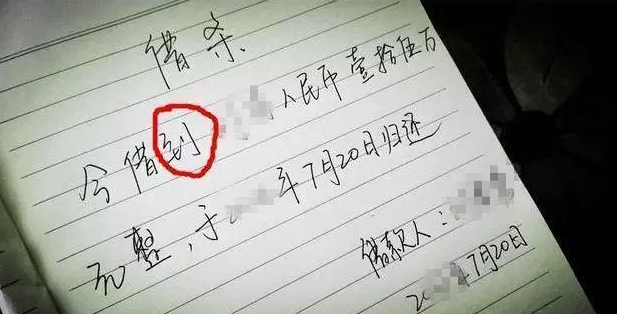 借条
今借到 人民币壹拾伍万
元整，于2 年7月20日归还
借款人：
20 年7月20日